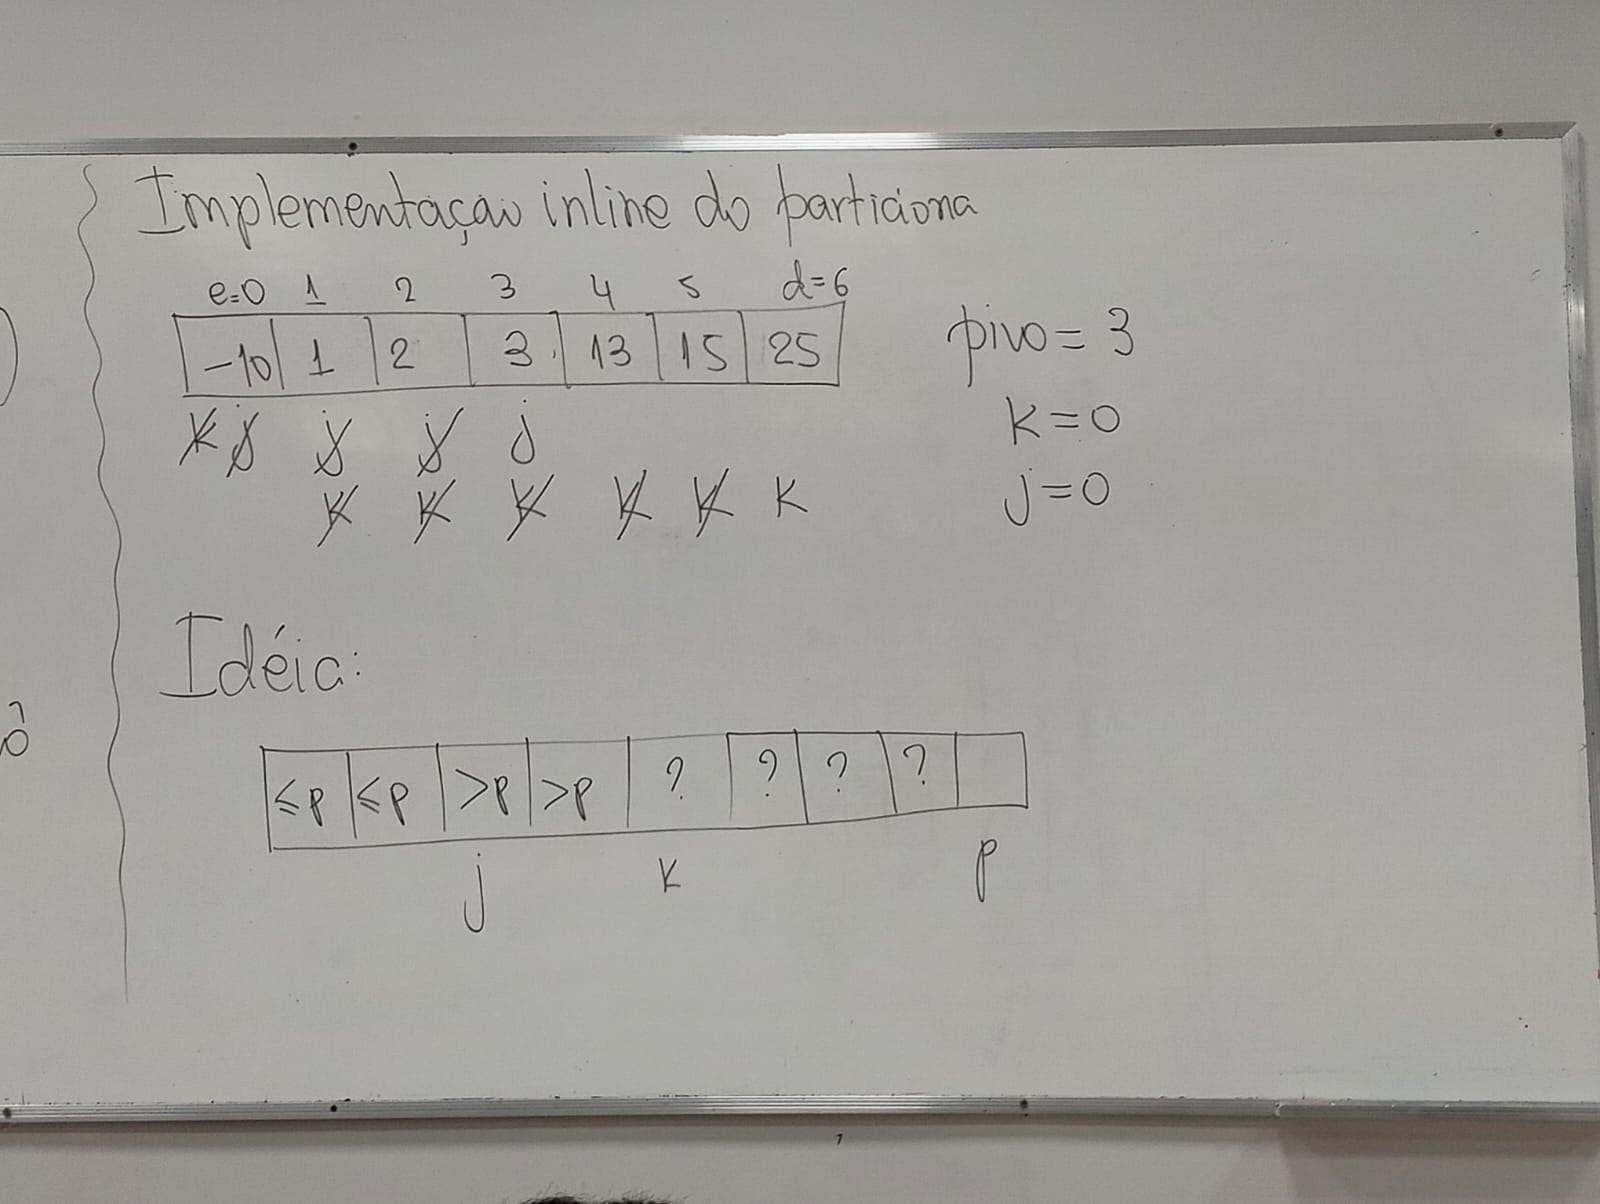 Implementação inline do particiona
e=0 1 2 3 4 5 d=6
-10 1 2 3 13 15 25
pivo = 3
k j j j j
k=0
k k k k k k
j=0
Idéia:
≤p ≤p >p >p ? ? ? ?
j k p
ô